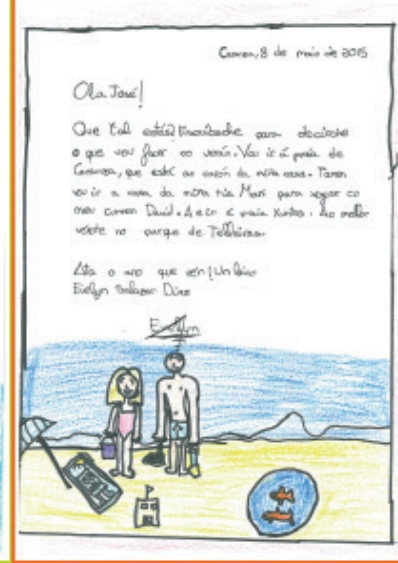 8 de maio de 2015
Ola José!
Que tal estás? Escriboche para decirche
o que vou facer no verán. Vou ir á praia de
que está ao carón da miña casa. Tamén
vou ir a casa da miña tía Mari para xogar co
meu curmán David. A e ir á praia xuntos. Ao mellor
véxote no parque de
Ata o ano que vén! Un bico
Evelyn Salazar Díaz
Evelyn